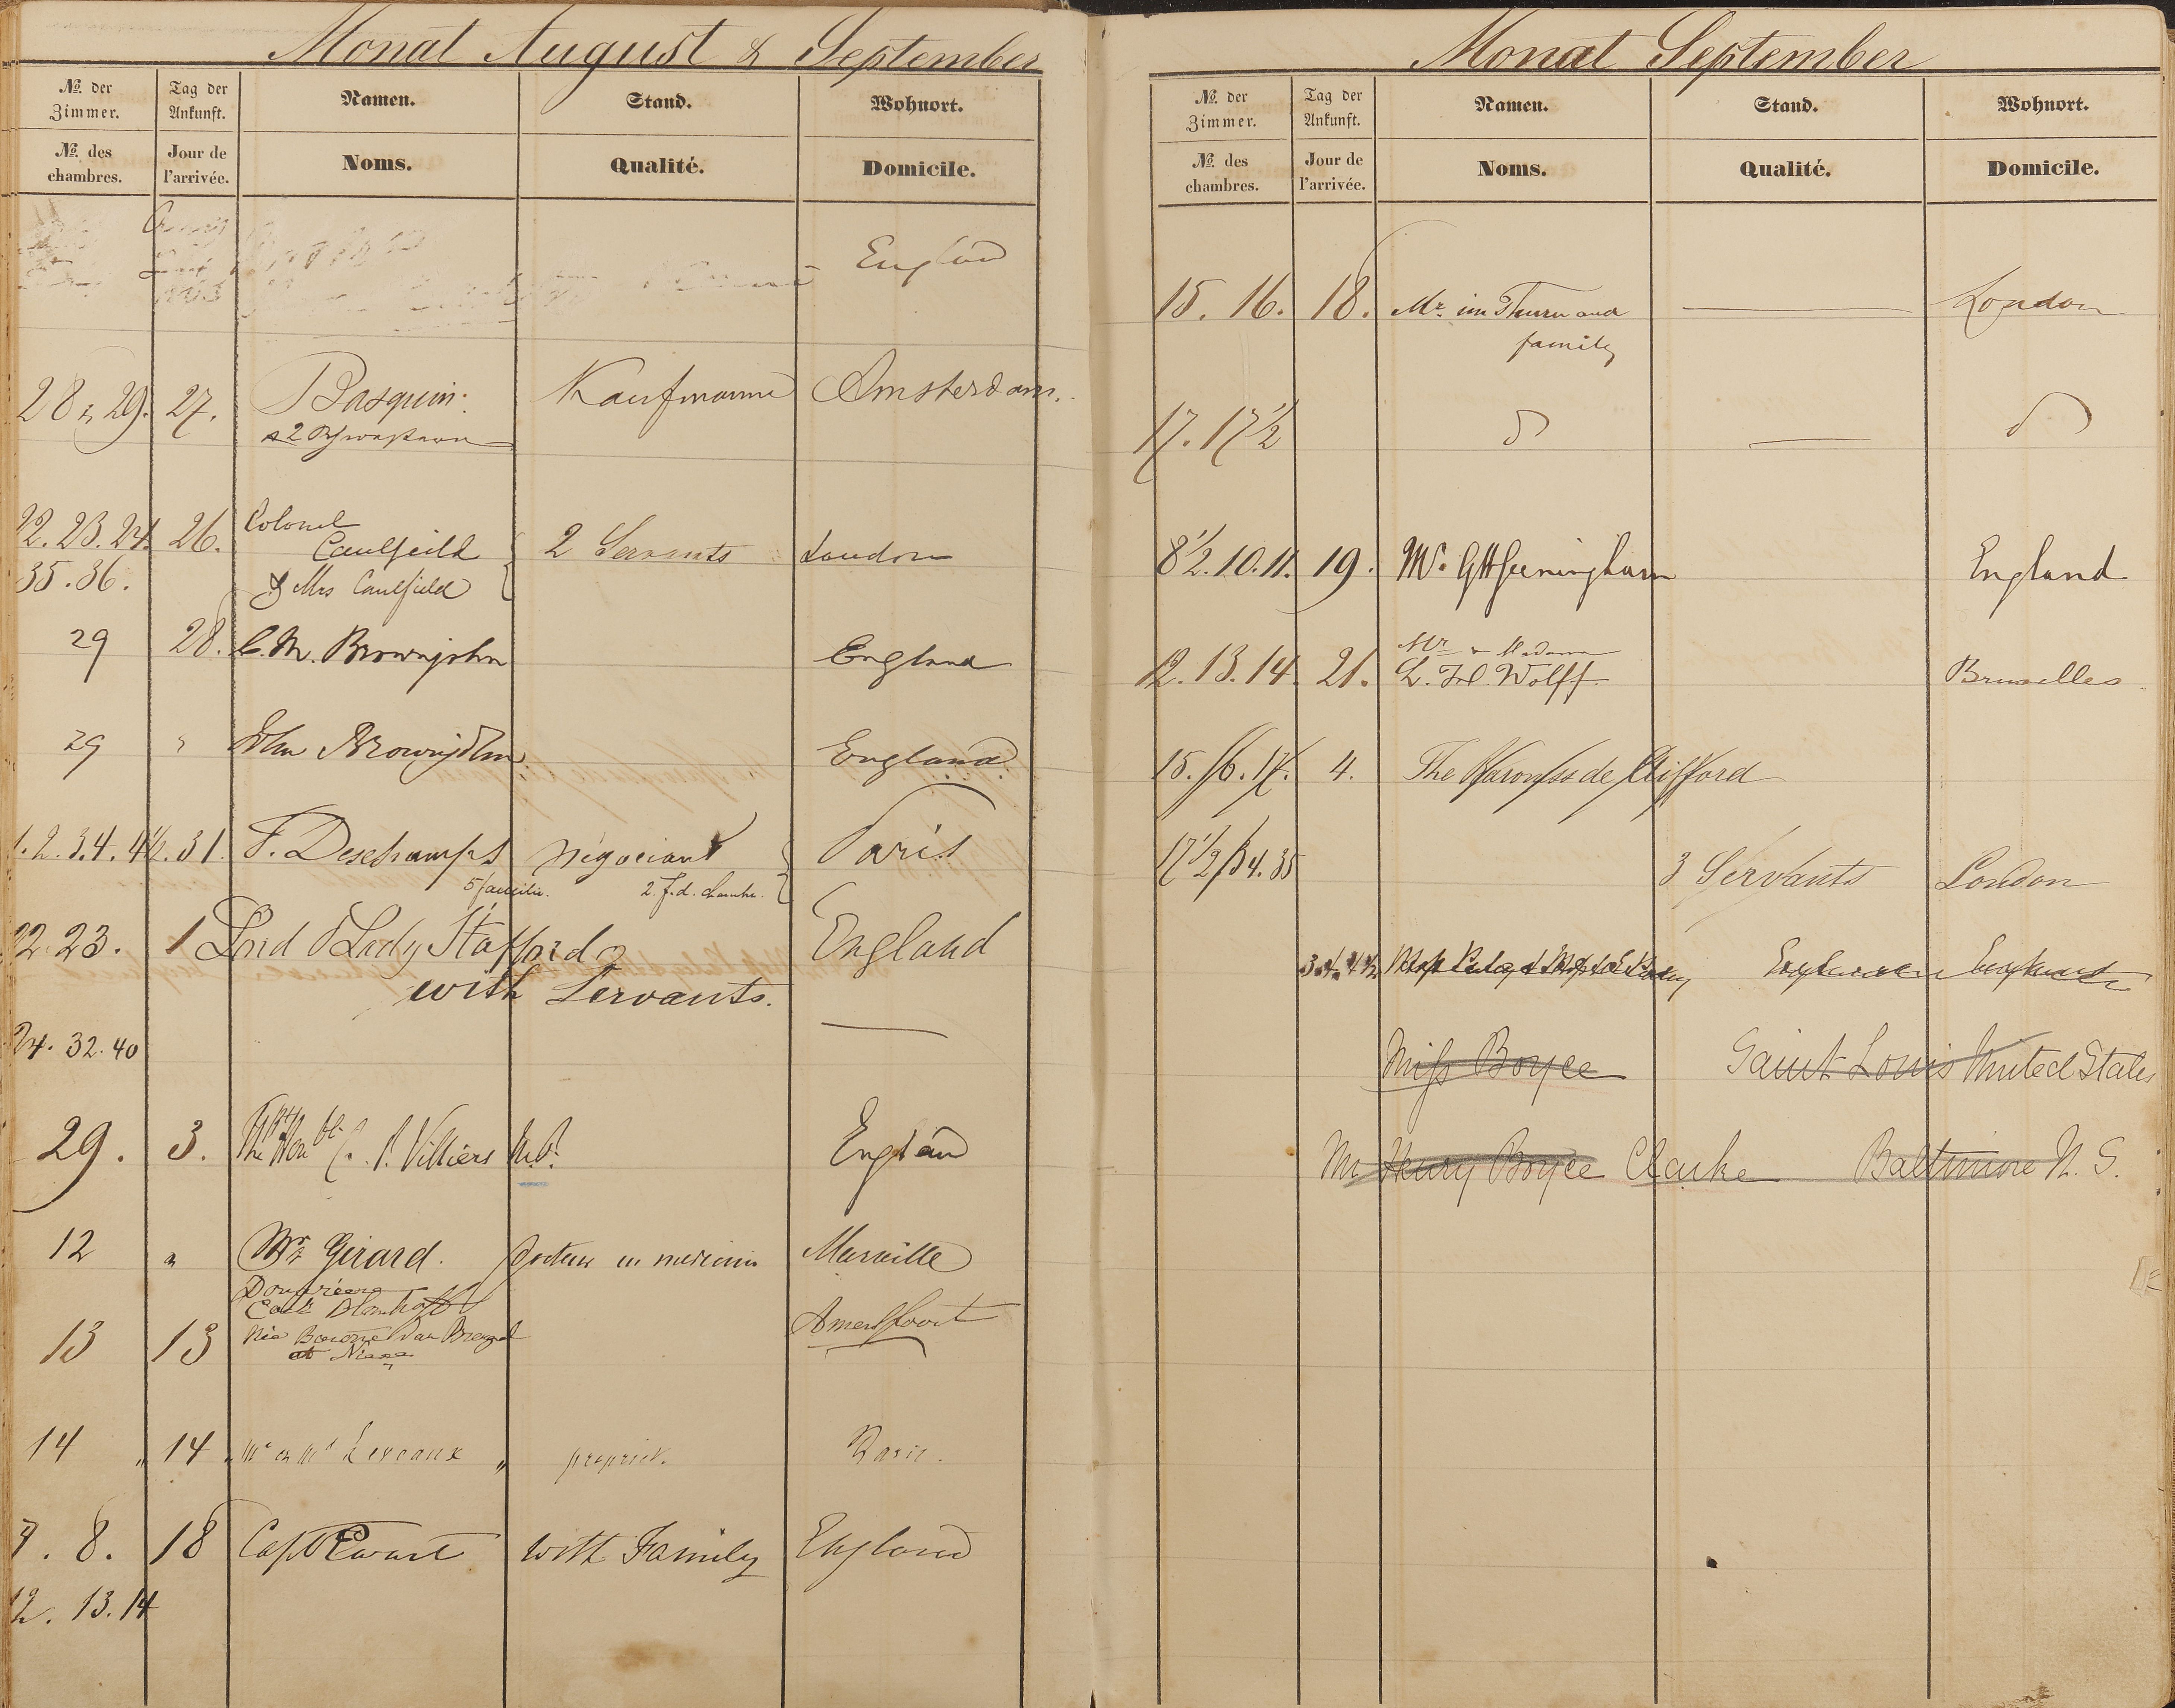 Monat August & September
No. der Zimmer. Tag der Ankunft. Namen. Stand. Wohnort.
No. des chambres. Jour de l'arrivée. Noms. Qualité. Domicile.
England
28 29. 27. Basquin. Kaufmann Amsterdam.
22. 23. 24. 26. Colonel
Caulfeild 2 Servants London
35. 36. & Mrs Caulfeild
29 28. C. M. Brownjohn England
29 " John Brownjohn England
1. 2. 3. 4. 4½. 31. F. Deschamps négociant Paris
5 famille. 2. f. d. chambr.
22 23. 1 Lord & Lady Stafford England
with Servants.
24. 32. 40
29. 3. The Rt Honble C. P. Villiers M.P. England
12 " Mr Girard. Docteur en medecine Marseille
Douairière
13 13 née Baronne van Amersfoort
14 " 14 " Mr et Md Leveaux " propriét. Paris.
7. 8. 18 Capt Ewart with Family England
12. 13. 14
Monat September
No. der Zimmer. Tag der Ankunft. Namen. Stand. Wohnort.
No. des chambres. Jour de l'arrivée. Noms. Qualité. Domicile.
15. 16. 18. Mr. im Thurn and London
family
17. 17½ do do
8½. 10. 11. 19. Mr. England
Mr & Madame
12. 13. 14. 21. L. Wolff Bruxelles
15. 16. 17. 4. The Baroness de Clifford
17½ 34. 35 3 Servants London
3. 4. 4½
Miss Boyce Saint Louis United States
Mr Henry Boyce Clarke Baltimore U. S.